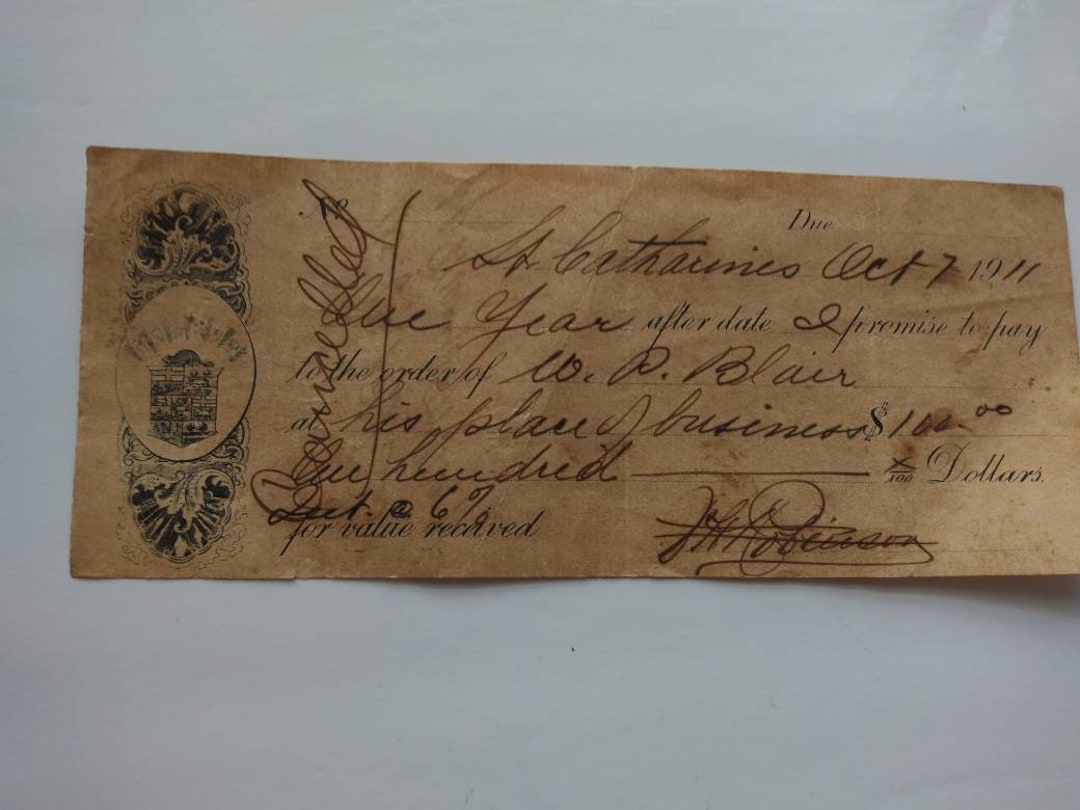 No Due
St. Catharines Oct 7 1911
One Year after date I promise to pay
to the order of W. P. Blair
at his place of business $100.00
One hundred x/100 Dollars.
Int. @ 6%
for value received
Robinson
Cancelled